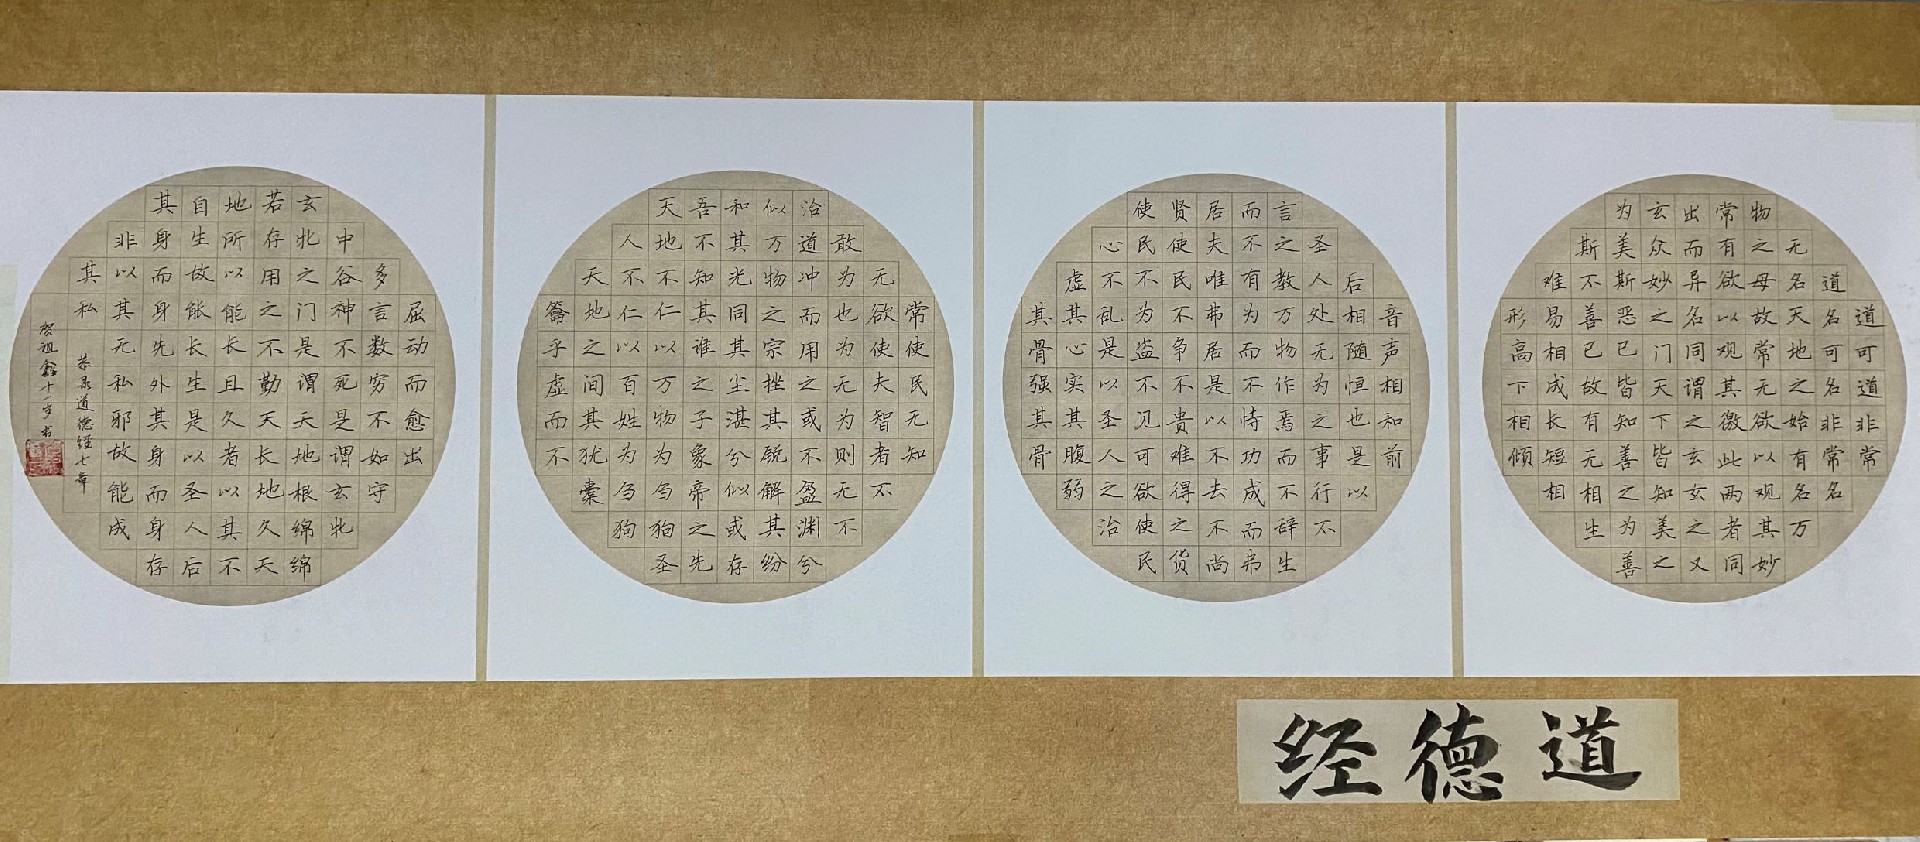 道可道非常
道名可名非常名
无名天地之始有名万
物之母故常无欲以观其妙
常有欲以观其徼此两者同
出而异名同谓之玄玄之又
玄众妙之门天下皆知美之
为美斯恶已皆知善之为善
斯不善已故有无相生
难易相成长短相
形高下相倾
音声相和前
后相随恒也是以
圣人处无为之事行不
言之教万物作焉而不辞生
而不有为而不恃功成而弗
居夫唯弗居是以不去不尚
贤使民不争不贵难得之货
使民不为盗不见可欲使民
心不乱是以圣人之治
虚其心实其腹弱
其骨强其骨
常使民无知
无欲使夫智者不
敢为也为无为则无不
治道冲而用之或不盈渊兮
似万物之宗挫其锐解其纷
和其光同其尘湛兮似或存
吾不知其谁之子象帝之先
天地不仁以万物为刍狗圣
人不仁以百姓为刍狗
天地之间其犹橐
籥乎虚而不
屈动而愈出
多言数穷不如守
中谷神不死是谓玄牝
玄北之门是谓天地根绵绵
若存用之不勤天长地久天
地所以能长且久者以其不
自生故能长生是以圣人后
其身而身先外其身而身存
非以其无私邪故能成
其私
恭录道德经七章
贺祖 十一岁书
道德经